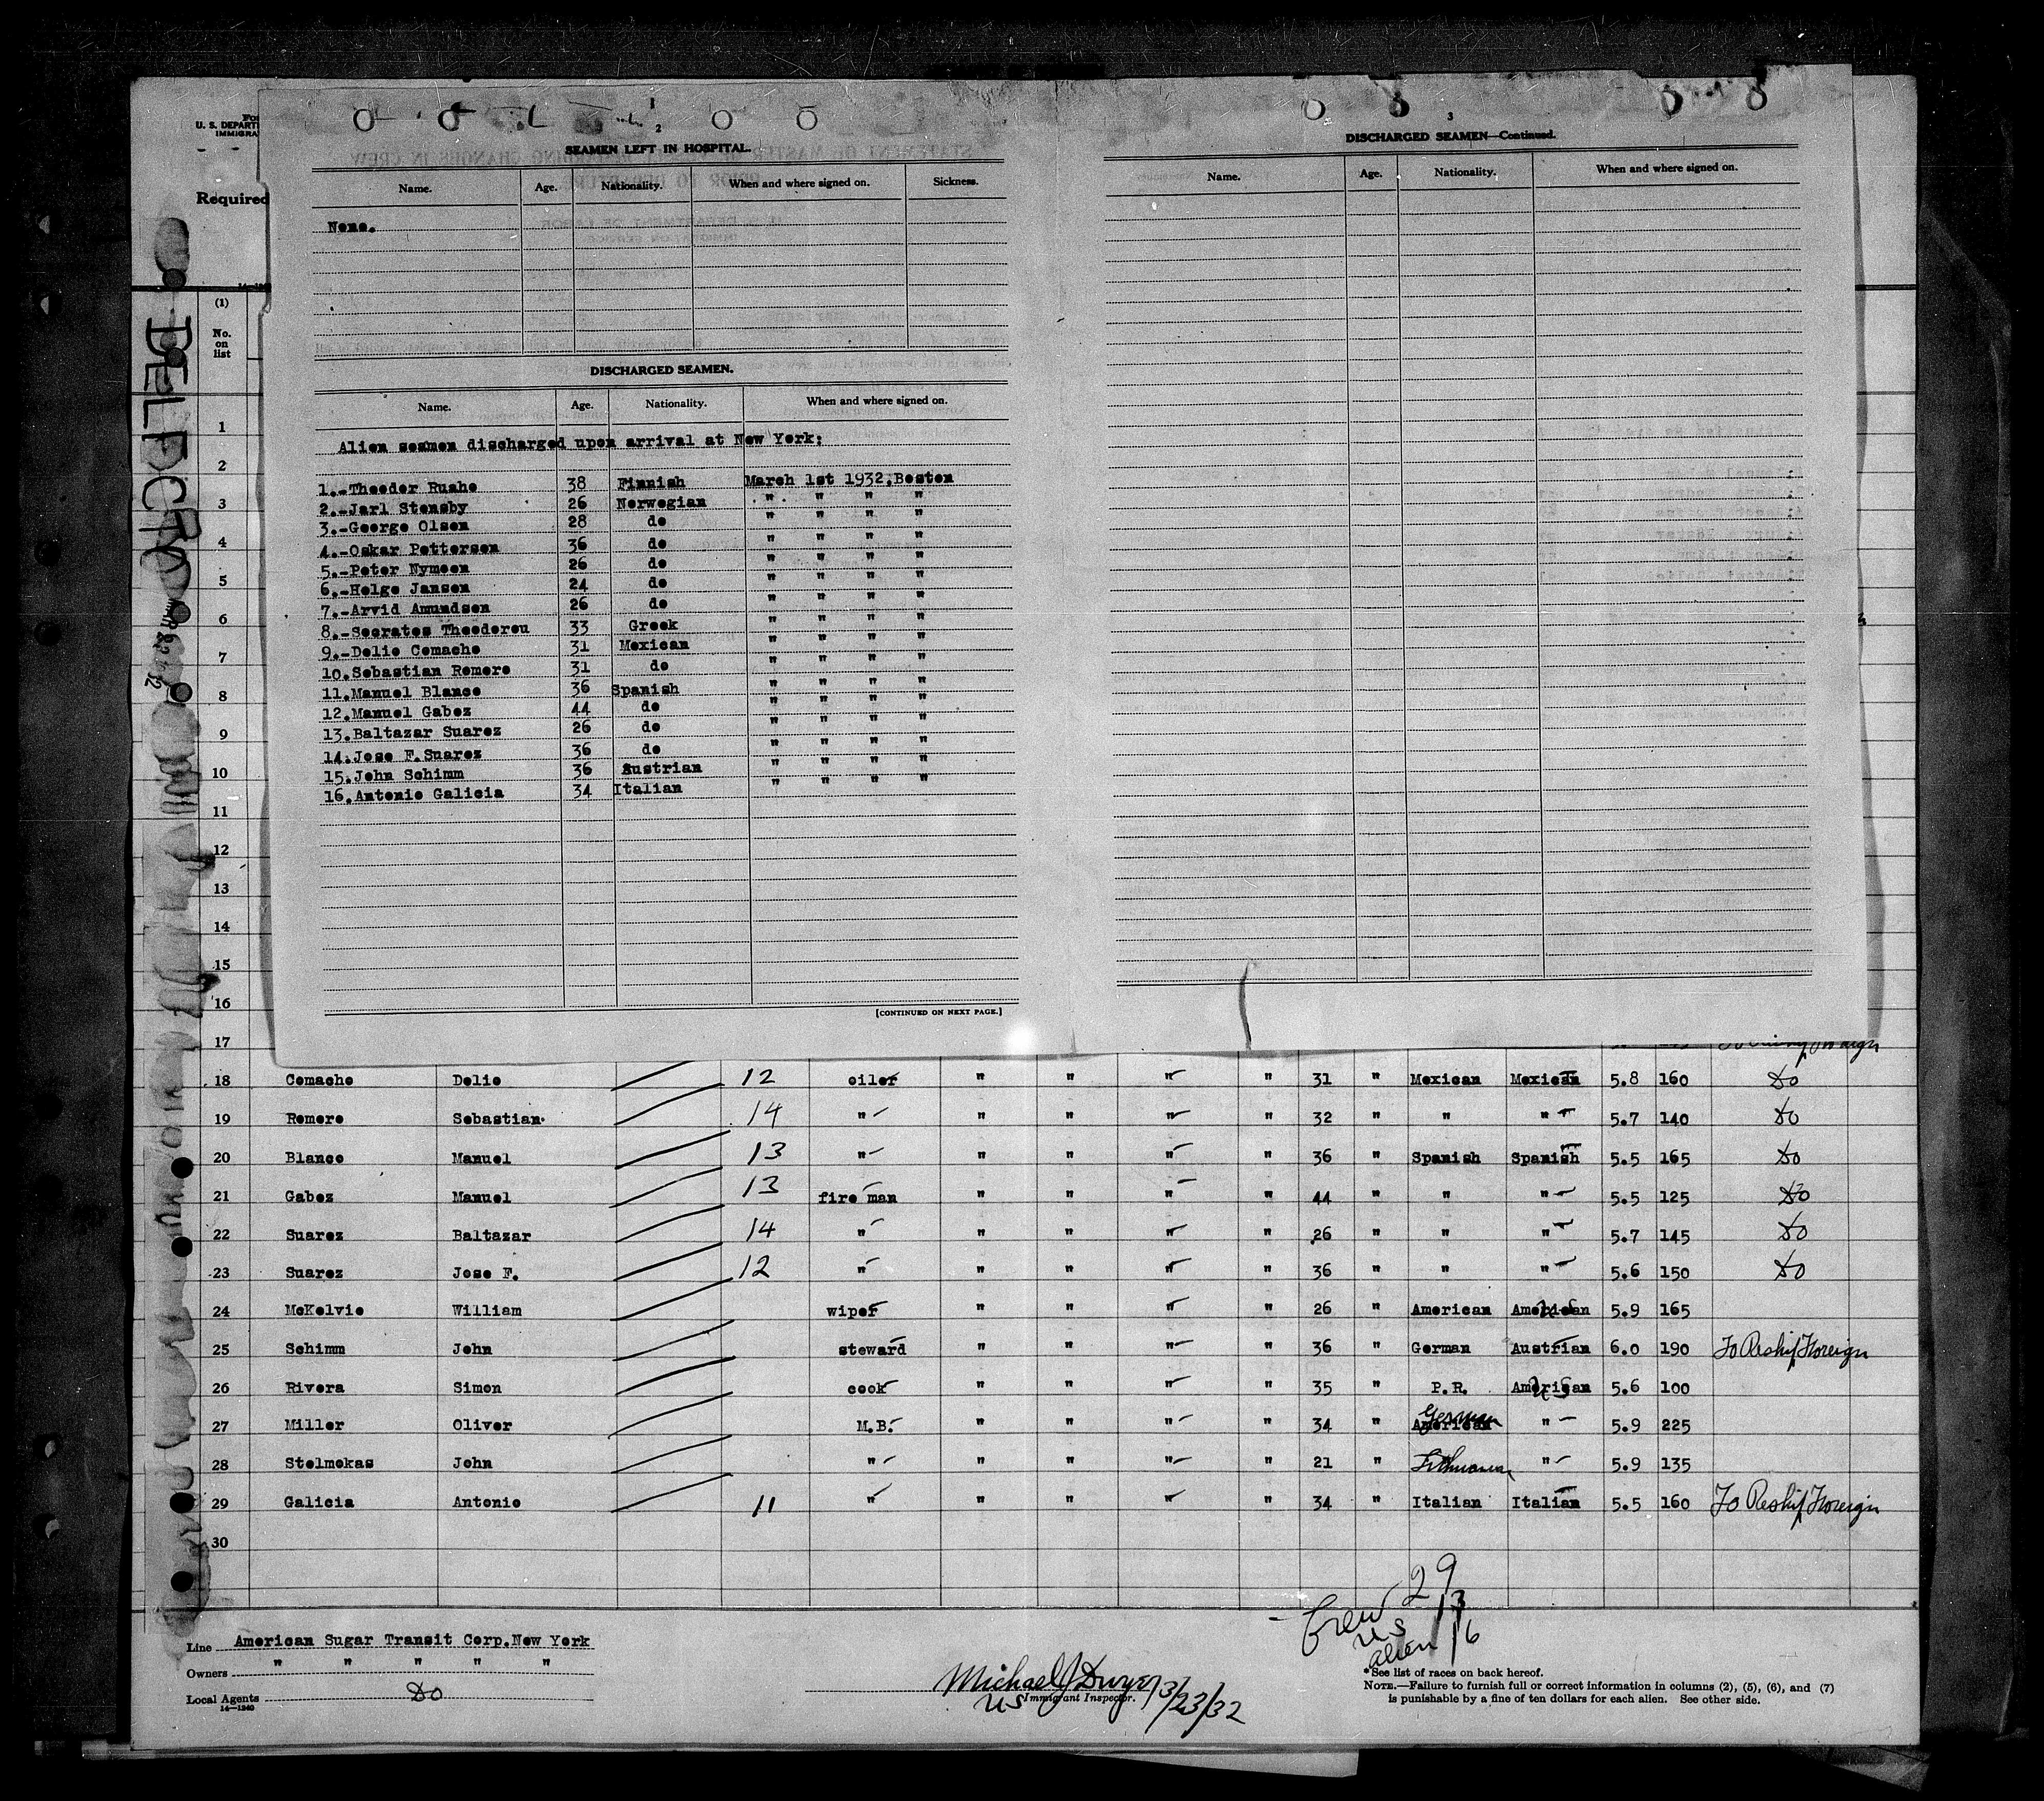 For
U. S. DEPART
IMMIGRA
Required
(1)
No.
on
list
DELFICRO
1
2
SEAMEN LEFT IN HOSPITAL.
Name. Age. Nationality. When and where signed on. Sickness.
None.
DISCHARGED SEAMEN.
Name. Age. Nationality. When and where signed on.
Alien seamen discharged upon arrival at New York:
1.-Theodor Ruaho 38 Finnish March 1st 1932,Boston
2.-Jarl Stensby 26 Norwegian " " " "
3.-George Olsen 28 do " " " "
4.-Oskar Pettersen 36 do " " " "
5.-Peter Nymoen 26 do " " " "
6.-Helge Jansen 24 do " " " "
7.-Arvid Amundsen 26 do " " " "
8.-Socrates Theodorou 33 Greek " " " "
9.-Delio Comacho 31 Mexican " " " "
10.Sebastian Romero 31 do " " " "
11.Manuel Blanco 36 Spanish " " " "
12.Manuel Gabez 44 do " " " "
13.Baltazar Suarez 26 do " " " "
14.Jose F.Suarez 36 do " " " "
15.John Schimm 36 Austrian " " " "
16.Antonio Galicia 34 Italian " " " "
[CONTINUED ON NEXT PAGE.]
3
DISCHARGED SEAMEN—Continued.
Name. Age. Nationality. When and where signed on.
1
2
3
4
5
6
7
8
9
10
11
12
13
14
15
16
17
18 Comacho Delio 12 oiler " " " " 31 " Mexican Mexican 5.8 160 Do
19 Romero Sebastian 14 " " " " " 32 " " " 5.7 140 Do
20 Blanco Manuel 13 " " " " " 36 " Spanish Spanish 5.5 165 Do
21 Gabez Manuel 13 fire man " " " " 44 " " " 5.5 125 Do
22 Suarez Baltazar 14 " " " " " 26 " " " 5.7 145 Do
23 Suarez Jose F. 12 " " " " " 36 " " " 5.6 150 Do
24 McKelvie William wiper " " " " 26 " American American US 5.9 165
25 Schimm John steward " " " " 36 " German Austrian 6.0 190 To Reship Foreign
26 Rivera Simon cook " " " " 35 " P.R. American US 5.6 100
27 Miller Oliver M.B. " " " " 34 " American German " 5.9 225
28 Stelmokas John " " " " " 21 " Lithuanian " 5.9 135
29 Galicia Antonio 11 " " " " " 34 " Italian Italian 5.5 160 To Reship Foreign
30
Crew 29
US 13
alien 16
Line American Sugar Transit Corp.New York
Owners " " " " "
Local Agents Do
14—1240
Michael J Dwyer 3/23/32
US Immigrant Inspector.
*See list of races on back hereof.
NOTE.—Failure to furnish full or correct information in columns (2), (5), (6), and (7)
is punishable by a fine of ten dollars for each alien. See other side.